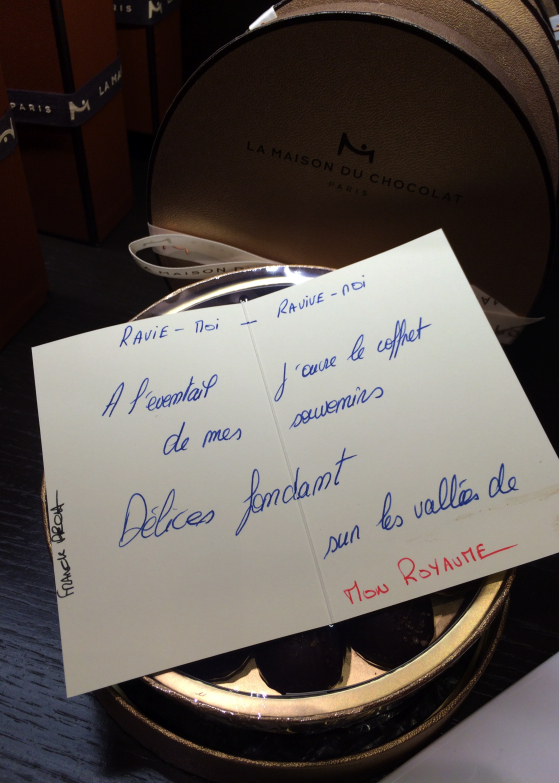 PARIS
LA MA
LA MAISON DU CHOCOLAT
PARIS
MAISON DU
RAVIE-MOI — RAVIVE-MOI
A l'éventail J'ouvre le coffret
de mes souvenirs
Délices fondant
sur les vallées de
MON ROYAUME
FRANCK